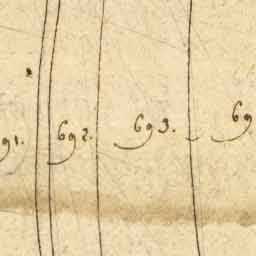 91. 692. 693. 69